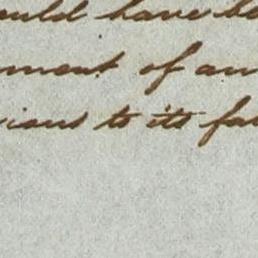 ould have be
ment of an
ious to its fa